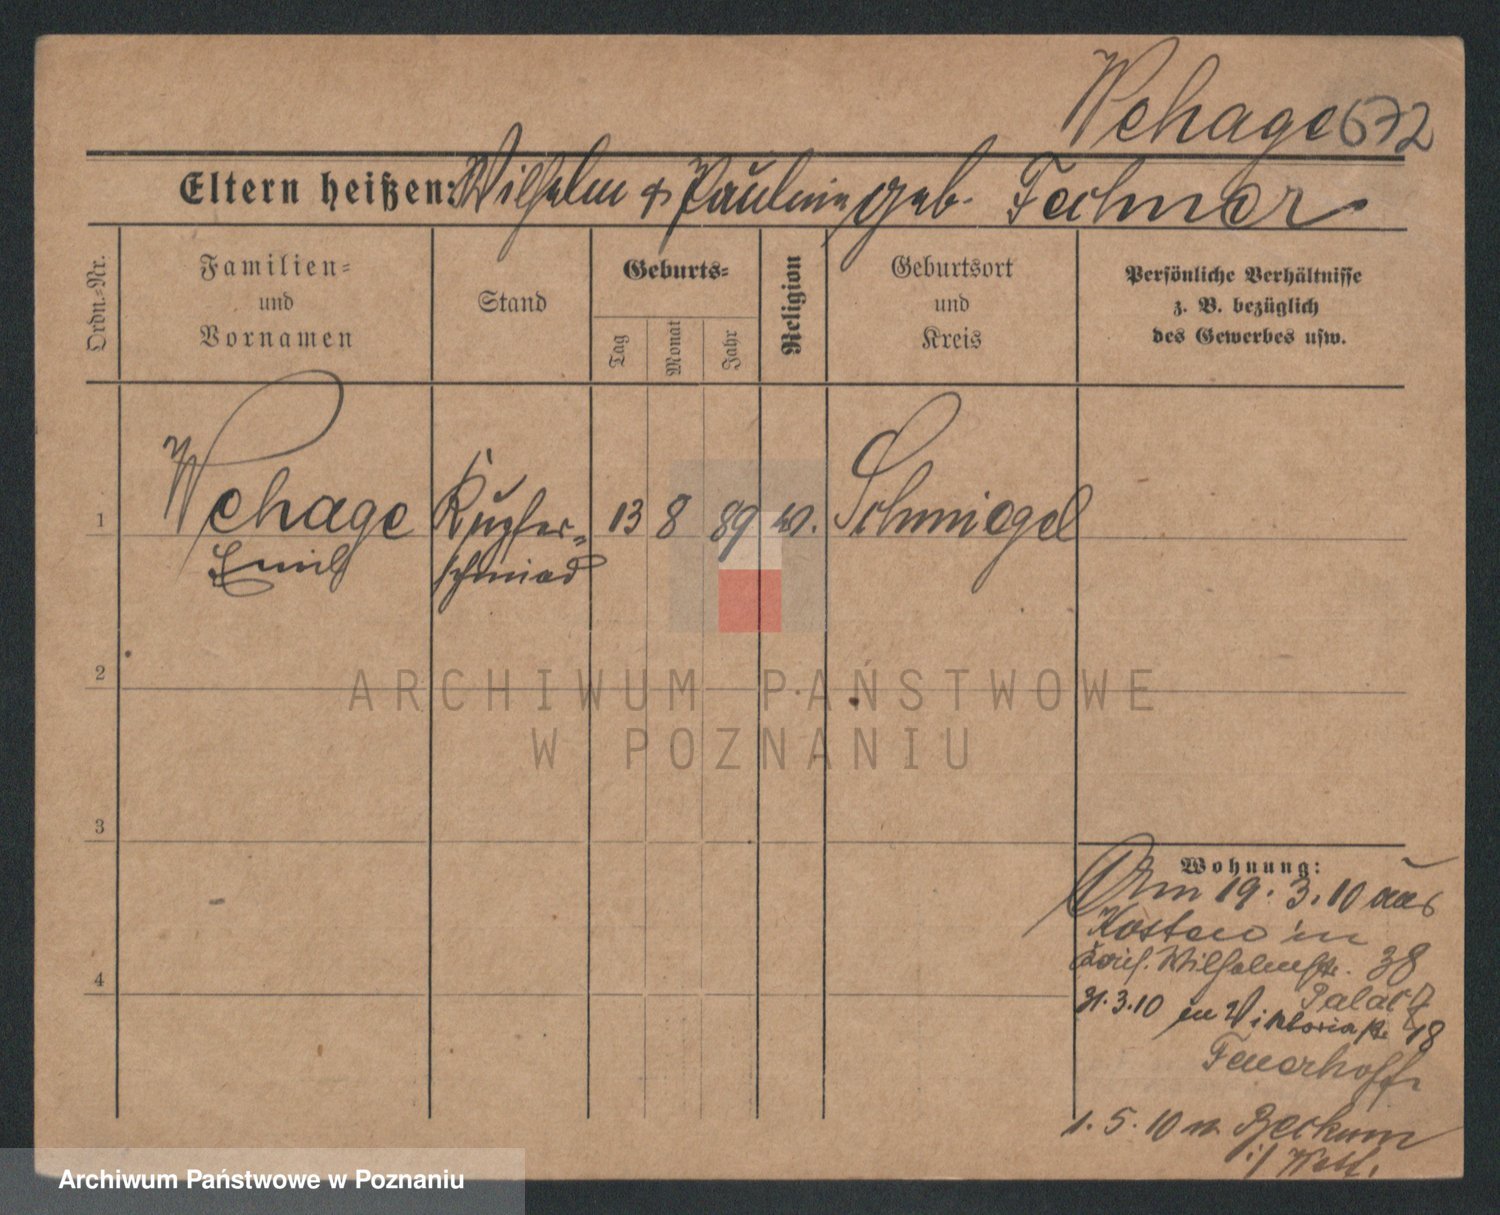 Wehage 672
Eltern heißen: Wilhelm & Pauline geb. Fechner
Ordn.-Nr.
Familien- und Vornamen
Stand
Geburts-
Tag
Monat
Jahr
Religion
Geburtsort und Kreis
Persönliche Verhältnisse
z. B. bezüglich
des Gewerbes usw.
1 Wehage Kupfer- 13 8 89 Schmiegel
Emil schmied
2
3
4
Wohnung:
Am 19.3.10 aus
Kosten in
Wilhelmstr. 38
31.3.10 in Viktoriastr. 18
Feuerhoff
1.5.10 n. Beckum
i/ Westf.
ARCHIWUM PAŃSTWOWE
W POZNANIU
Archiwum Państwowe w Poznaniu